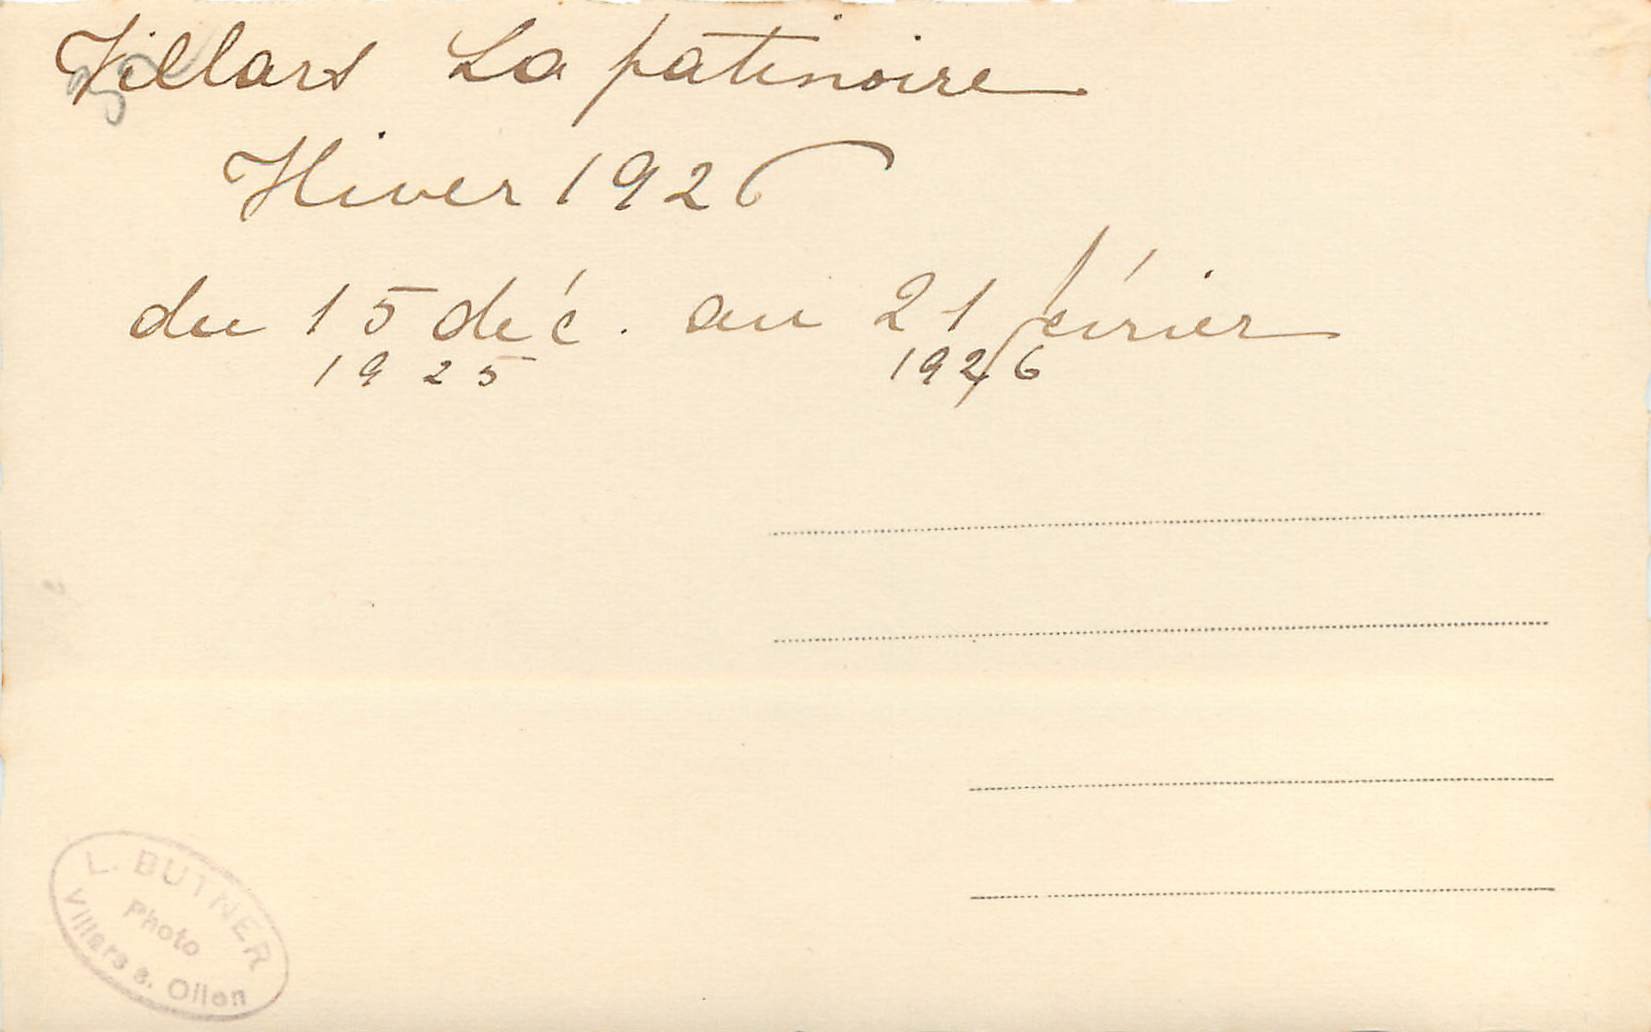 Villars La patinoire
Hiver 1926
du 15 déc. au 21 février
1925 1926
L. BUTNER
Photo
Villars s. Ollon